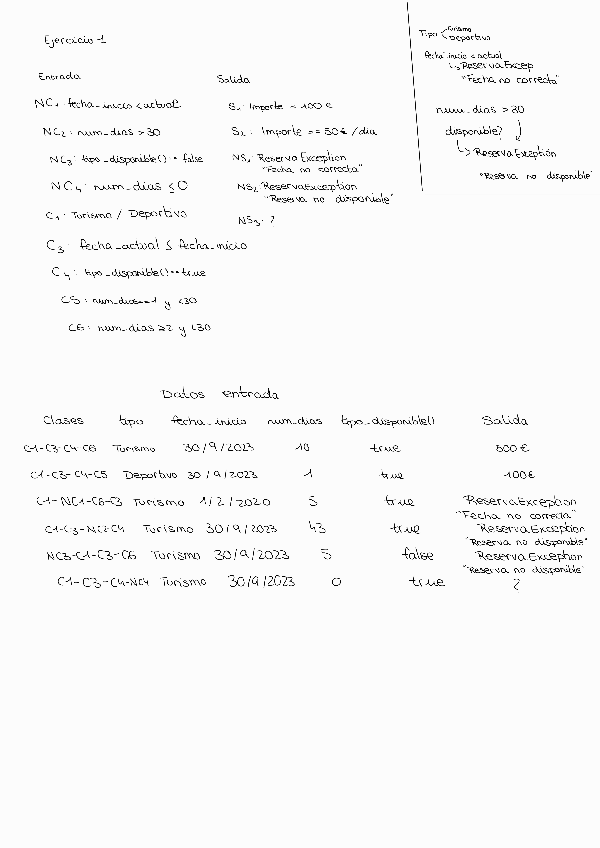 Ejercicio 1
Entrada
Salida
NC1: fecha_inicio < actual
S1: Importe = 100 €
NC2: num_dias > 30
S2: Importe == 50€ / dia
NC3: tipo_disponible() = false
NS1: Reserva Exception
"Fecha no correcta"
NC4: num_dias ≤ 0
NS2: ReservaException
"Reserva no disponible"
C1: Turismo / Deportivo
NS3: ?
C3: fecha_actual ≤ fecha_inicio
C4: tipo_disponible() == true
C5: num_dias==1 y <30
C6: num_dias ≥2 y <30
Tipo < Turismo
Deportivo
fecha_inicio < actual
↳ Reserva Excep
"Fecha no correcta"
num_dias > 30
disponible?
↳ Reserva Exception
"Reserva no disponible"
Datos entrada
Clases tipo fecha_inicio num_dias tipo_disponible() Salida
C1-C3-C4-C6 Turismo 30/9/2023 10 true 500€
C1-C3-C4-C5 Deportivo 30/9/2023 1 true 100€
C1-NC1-C6-C3 Turismo 1/2/2020 5 true ReservaException
"Fecha no correcta"
C1-C3-NC2-C4 Turismo 30/9/2023 43 true ReservaException
"Reserva no disponible"
NC3-C1-C3-C6 Turismo 30/9/2023 5 false ReservaException
"Reserva no disponible"
C1-C3-C4-NC4 Turismo 30/9/2023 0 true ?